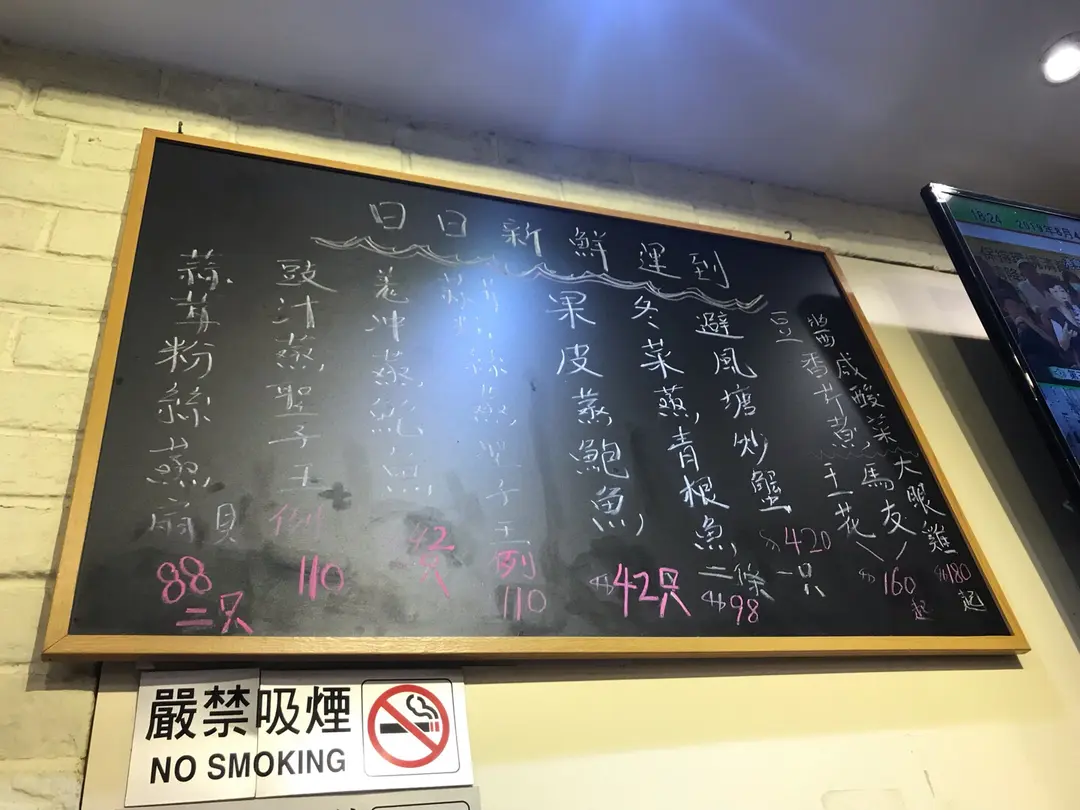 日日新鮮運到
豆
避風塘炒蟹
$420
一只
冬菜蒸青根魚
二條
$98
果皮蒸鮑魚
$42只
蒜蓉粉絲蒸聖子王
例
110
42
只
豉汁蒸聖子王
例
110
蒜茸粉絲蒸扇貝
88
二只
咸酸菜
香芹煮
大眼雞
$180
起
馬友
王花
$160
起
18:24 2019年8月4
嚴禁吸煙
NO SMOKING